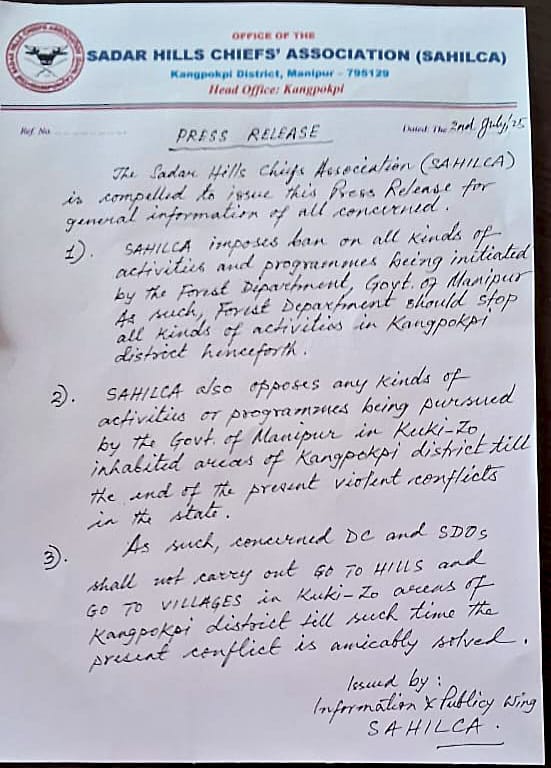 OFFICE OF THE
SADAR HILLS CHIEFS' ASSOCIATION (SAHILCA)
Kangpokpi District, Manipur - 795129
Head Office: Kangpokpi
Ref. No.
Dated: The 2nd July, '25
PRESS RELEASE
The Sadar Hills Chiefs Association (SAHILCA)
is compelled to issue this Press Release for
general information of all concurned.
1). SAHILCA imposes ban on all kinds of
activities and programmes being initiated
by the Forest Department, Govt. of Manipur
As such, Forest Department should stop
all kinds of activities in Kangpokpi
district henceforth.
2). SAHILCA also opposes any kinds of
activities or programmes being pursued
by the Govt. of Manipur in Kuki-Zo
inhabited areas of Kangpokpi district till
the end of the present violent conflicts
in the state.
3). As such, concurned DC and SDOs
shall not carry out GO TO HILLS and
GO TO VILLAGES in Kuki-Zo areas of
Kangpokpi district till such time the
present conflict is amicably solved.
Issued by:
Information & Publicy Wing
SAHILCA.